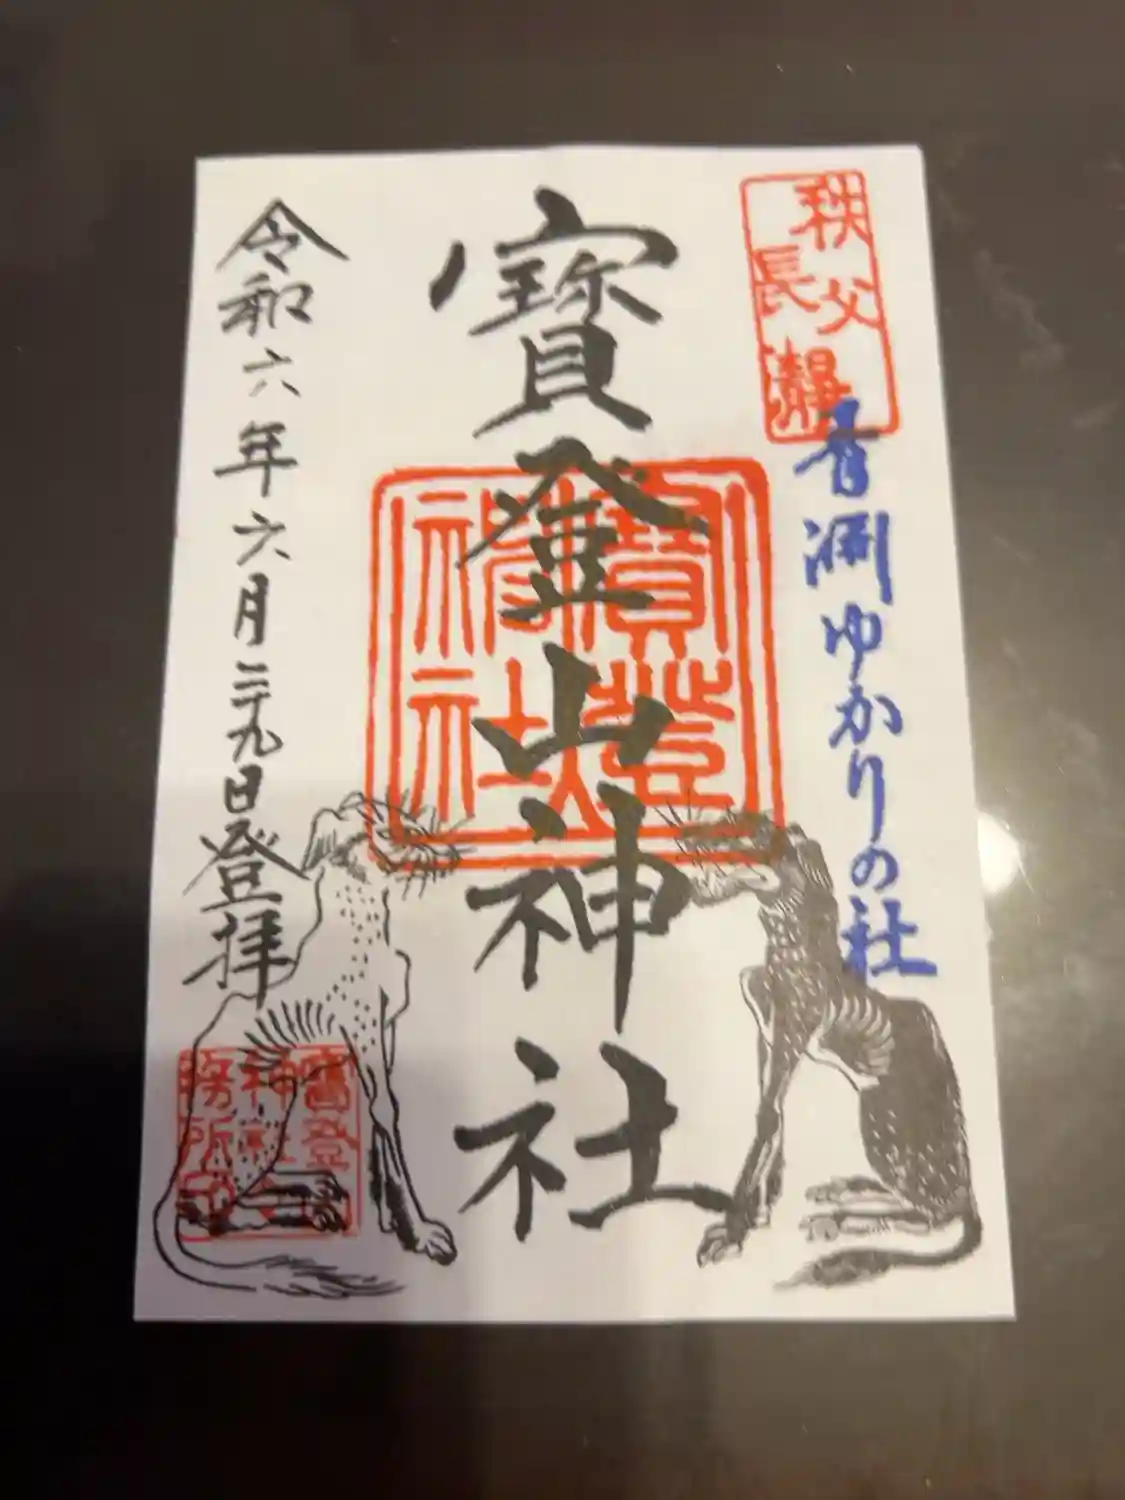 秩父
長瀞
青淵ゆかりの社
寳登山神社
寳登
神社
令和六年六月二十九日登拝
寳登山
神社社
務所印